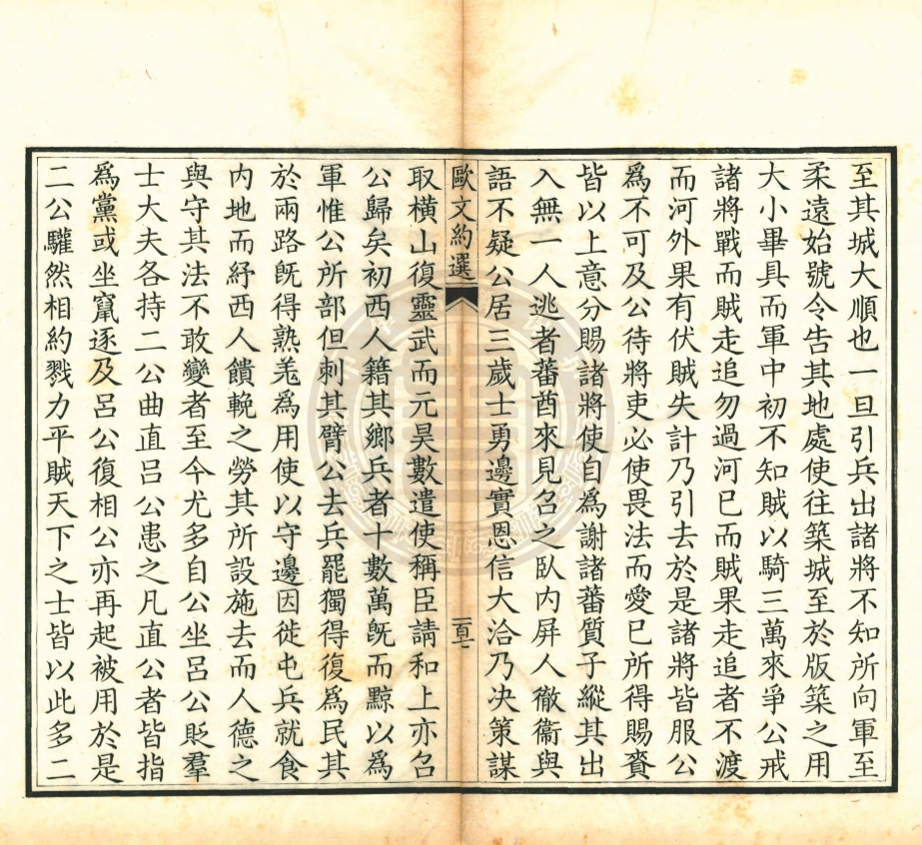 至其城大順也一旦引兵出諸將不知所向軍至
柔遠始號令告其地處使往築城至於版築之用
大小畢具而軍中初不知賊以騎三萬來爭公戒
諸將戰而賊走追勿過河已而賊果走追者不渡
而河外果有伏賊失計乃引去於是諸將皆服公
爲不可及公待將吏必使畏法而愛已所得賜賚
皆以上意分賜諸將使自爲謝諸蕃質子縱其出
入無一人逃者蕃酋來見召之臥內屏人徹衞與
語不疑公居三歲士勇邊實恩信大洽乃決策謀
歐文約選
一百七
取橫山復靈武而元昊數遣使稱臣請和上亦召
公歸矣初西人籍其鄉兵者十數萬旣而黥以爲
軍惟公所部但刺其臂公去兵罷獨得復爲民其
於兩路旣得熟羌爲用使以守邊因徙屯兵就食
内地而紓西人饋輓之勞其所設施去而人德之
與守其法不敢變者至今尤多自公坐呂公貶羣
士大夫各持二公曲直呂公患之凡直公者皆指
爲黨或坐竄逐及呂公復相公亦再起被用於是
二公驩然相約戮力平賊天下之士皆以此多二